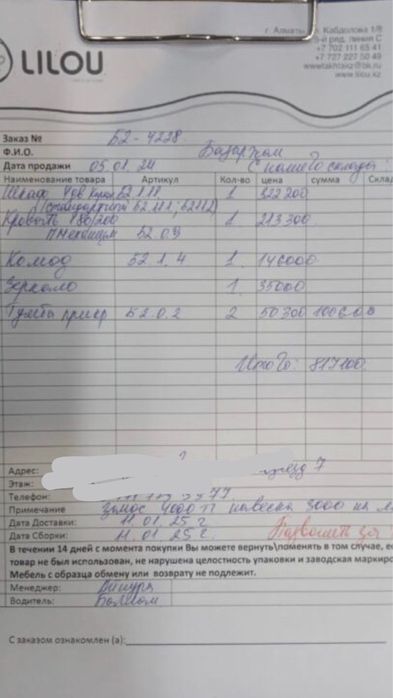 г. Алматы, Кабдолова 1/8
5-й ряд, линия С
+7 702 111 65 41
+7 727 227 50 49
www.lilou.kz
LILOU
Заказ № Б2-4228
Ф.И.О. Базарком
Дата продажи 05.01.24 С нашего склада
Наименование товара Артикул Кол-во цена сумма Склад
Шкаф 4дв Б2.1.11 1 322200
(стандартный Б2.11.1; Б2.11.2)
Кровать 180/200 1 213300
Б2 0.9
Комод Б2 1.4 1 146000
Зеркало 1 35000
Тумба прикр Б2 0.2 2 50300 100600
Итого: 817100
Адрес: 7
Этаж:
Телефон:
Примечание Занос 4000 тг навеска 3000
Дата Доставки: 11.01.25 г
Дата Сборки: 11.01.25 г. Позвонить за
В течении 14 дней с момента покупки Вы можете вернуть\поменять в том случае, ес
товар не был использован, не нарушена целостность упаковки и заводская маркиро
Мебель с образца обмену или возврату не подлежит.
Менеджер:
Водитель:
С заказом ознакомлен (а):